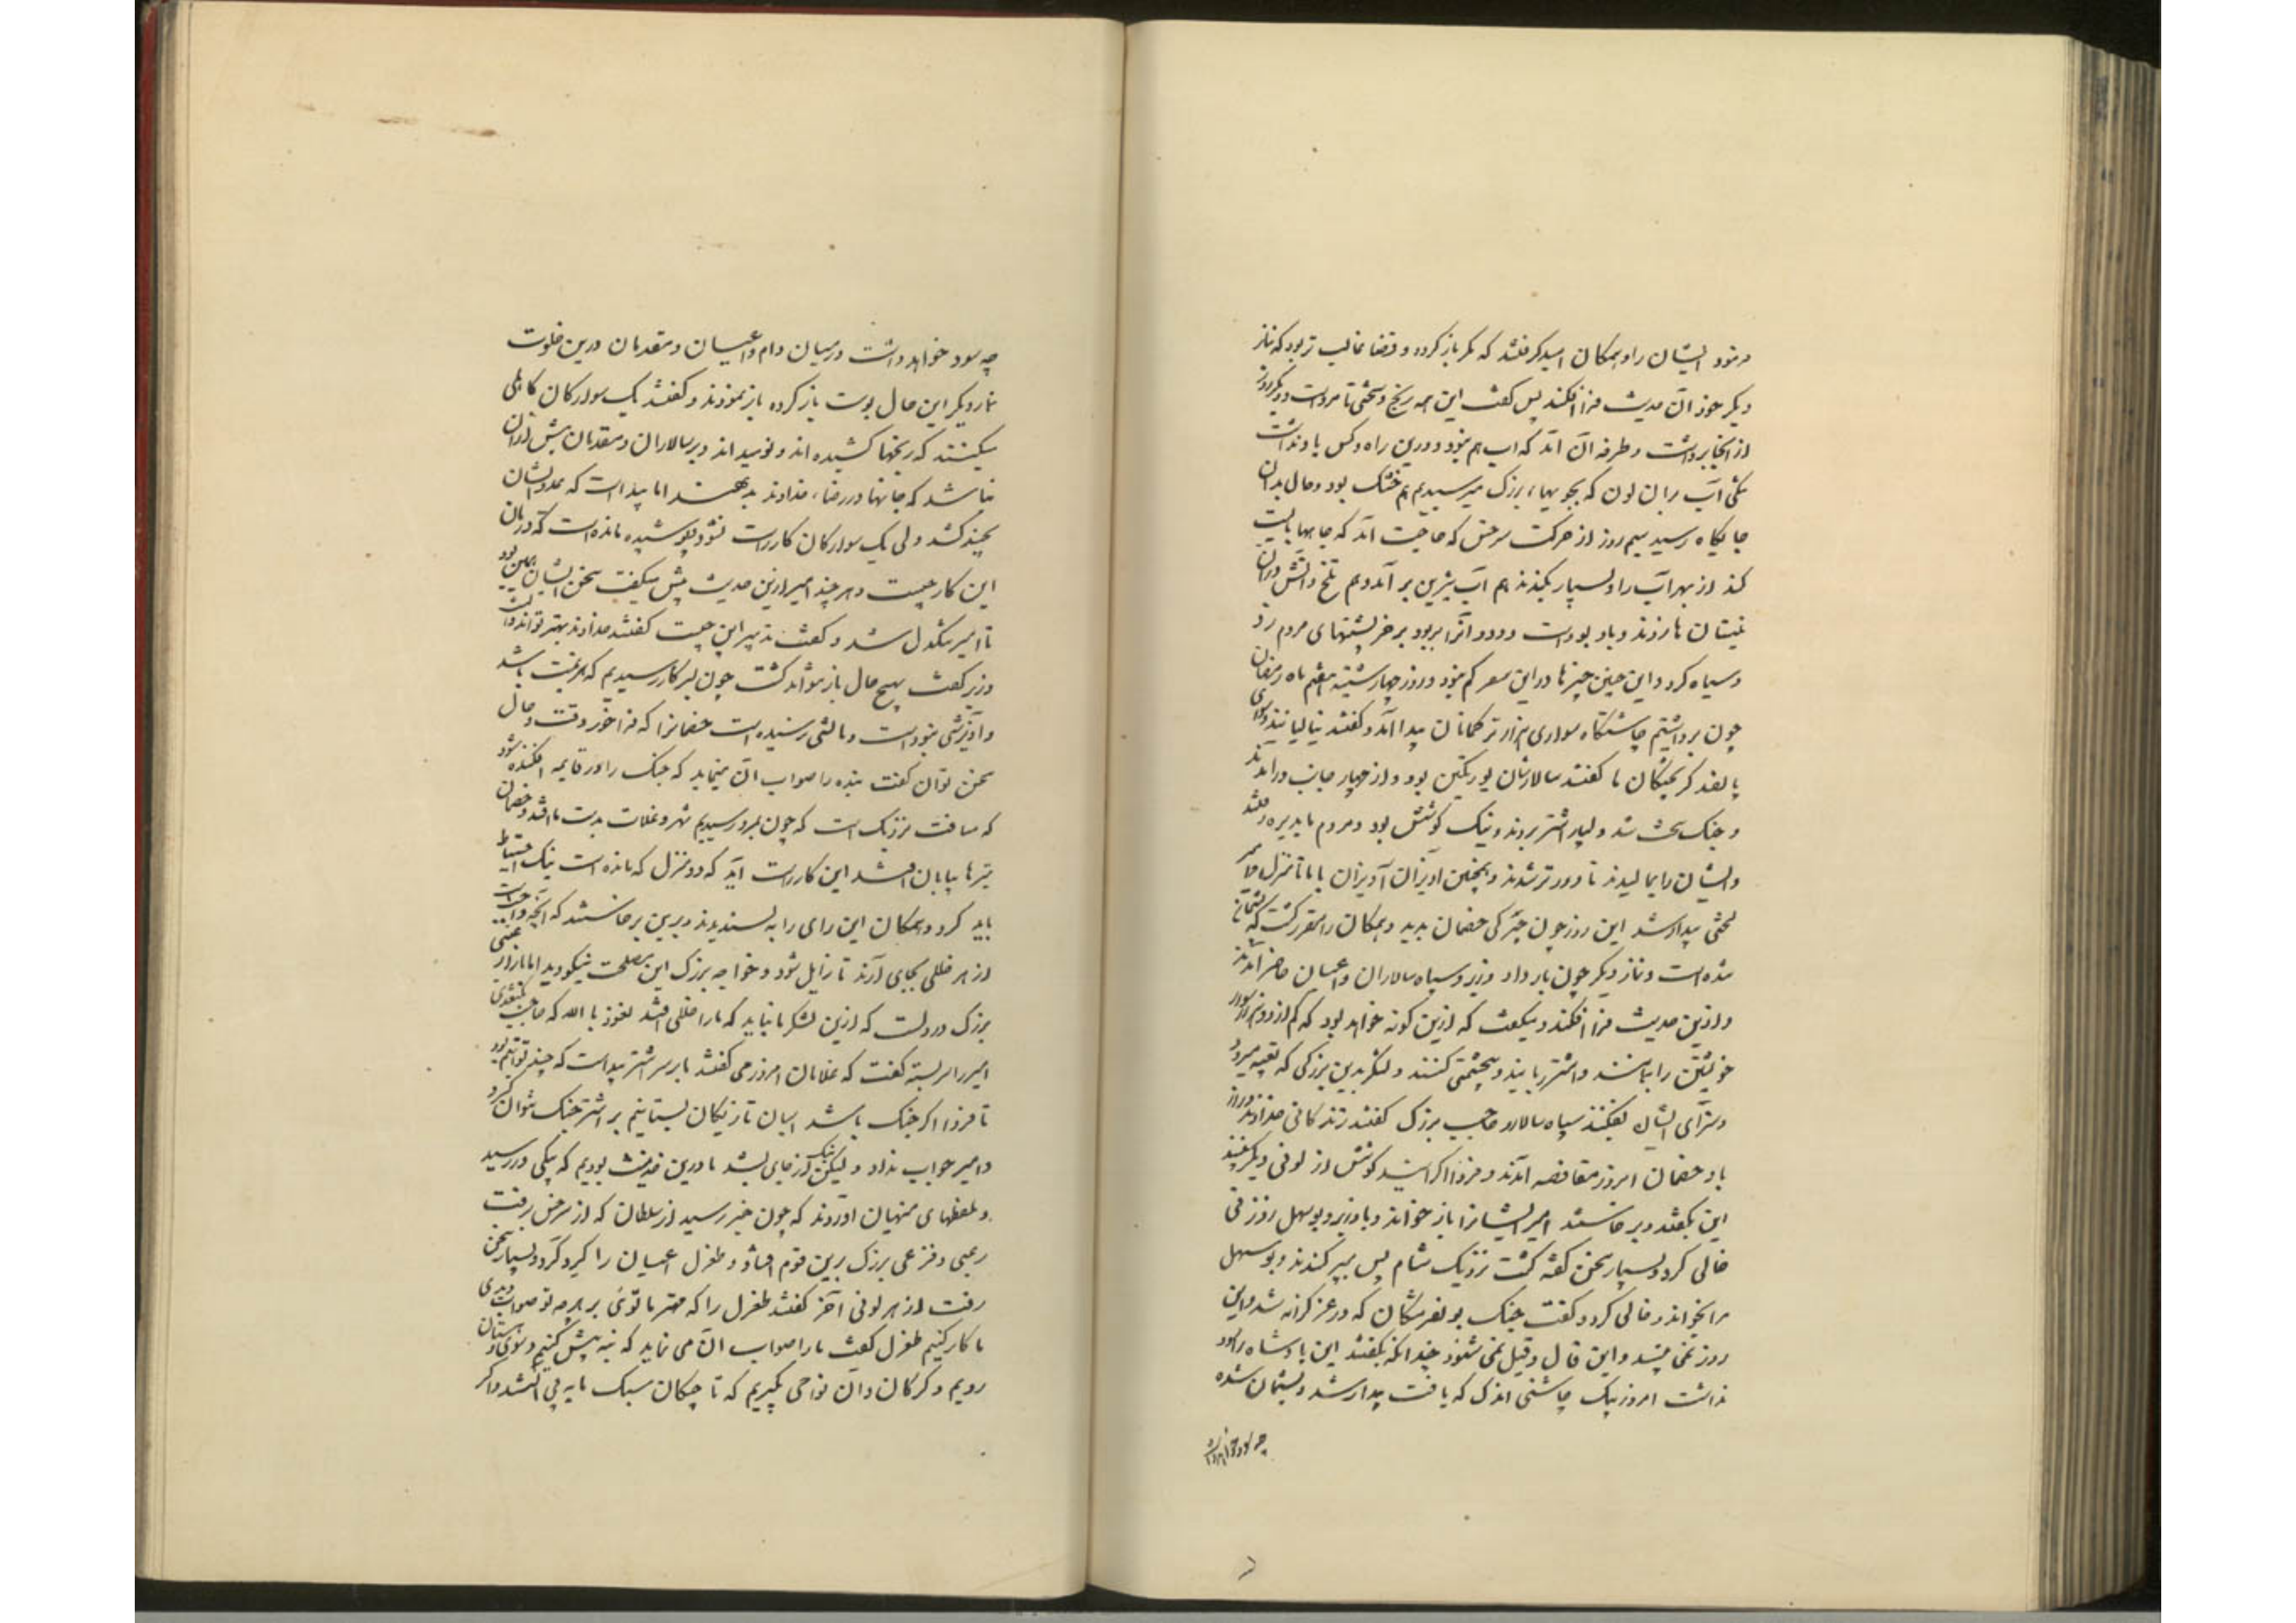 در نبود ایشان را و همکان امید کرفتند که مکر باز کردد و قضا غالب تر بود که نماز
دیکر خود آن حدیث فرا افکند پس کفت این همه رنج و سختی تا مرو است و دیکر روز
از آنجا برداشت و طرفه آن آمد که آب هم نبود درین راه و کس یاد نداشت
تنکی آب بران لون که بجویهای بزرک میرسیدیم هم خشک بود و حال بدان
جایکاه رسید سیم روز از حرکت سرخس که حاجت آمد که چاهها بایست
کند از بهر آب را و بسیار بکندند هم آب شیرین بر آمد و هم تلخ و آتش دران
نیستان ها زدند و باد بوزید است و دود آنرا بربود بر خر پشتهای مردم زد
و سیاه کرد و این چنین چیزها در این سفر کم نبود و روز چهارشنبه هفتم ماه رمضان
چون برداشتیم چاشتکاه سواری هزار ترکمانان پیدا آمد و کفتند ینالیانند و سواری
پانصد کریختکان ما کفتند سالارشان بورتکین بود و از چهار جانب در آمدند
و جنک سخت شد و بسیار اشتر بردند و نیک کوشش بود و مردم ما پذیره رفتند
و ایشان را بمالیدند تا دورتر شدند و همچنین آویزان آویزان با ما تا منزل آمدند امیر
لختی بیدار شد این روز چون چیرکی خصمان بدید و همکان را مقرر کشت که پشیمان
شده است و نماز دیکر چون بار داد وزیر و سپاه سالاران و اعیان حاضر آمدند
و ازین حدیث فرا افکند و میکفت که ازین کونه خواهد بود که کم از دو هزار سوار
خویشتن را بنمایند و اشتر ربایند و بیحشمتی کنند و لشکر بدین بزرکی که تعبیه میرود
و سزای ایشان بفکنند سپاه سالار و حاجب بزرک کفتند زندکانی خداوند دراز
باد خصمان امروز مغافصه آمدند و فردا اکر آیند کوشش از لونی دیکر بینند
این بکفتند و برخاستند امیر ایشانرا باز خواند و با وزیر و بوسهل زوزنی
خالی کرد و بسیار سخن کفته کشت نزدیک شام پس بپراکندند و بوسهل
مرا بخواند و خالی کرد و کفت خنک بونصر مشکان که در عز کرانه شد و این
روز نمی بیند و این قال و قیل نمی شنود چندانکه بکفتند این پادشاه را سود
نداشت امروز بیک چاشنی اندک که یافت بیدار شد و پشیمان شده
چه سود خواهد داشت
چه سود خواهد داشت در میان دام و اعیان و مقدمان درین خلوت
نماز دیکر این حال پوست باز کرده باز نمودند و کفتند یک سوارکان کاهلی
میکنند که رنجها کشیده اند و نومیداند و بر سالاران و مقدمان بیش ازان
نباشد که جانها در رضای خداوند بدهند اما پیداست که عدد ایشان
بچند کشد و بی یک سوارکان کار راست نشود و پوشیده مانده است که درمان
این کار چیست و هر چند امیر ازین حدیث بیش میکفت سخن ایشان همین بود
تا امیر تنکدل شد و کفت تدبیر این چیست کفتند خداوند بهتر تواند دانست
وزیر کفت بهیچ حال باز نتواند کشت چون بسر کار رسیدیم که هزیمت باشد
و آویزشی نبوده است و مالشی رسیده است خصمانرا که فراخور وقت و حال
سخن توان کفت بنده را صواب آن مینماید که جنک را در قایمه افکنده شود
که مسافت نزدیک است که چون بمرو رسیدیم شهر و غلات بدست ما افتد و خصمان
تیزها بپایان افتند این کار راست آید که دو منزل که مانده است نیک احتیاط
باید کرد و همکان این رای را بپسندیدند و برین برخاستند که آنچه واجب است
از هر خللی بجای آرند تا زایل شود و خواجه بزرک این مصلحت نیکو دید اما ما را
بزرک در دلست که ازین لشکر ما نباید که ما را خللی افتد نعوذ با الله که حاجب بکتغدی
امیر را سربسته کفت که غلامان امروز می کفتند ما بر سر اشتر پیداست که چند توانیم بود
تا فردا اکر جنک باشد اسبان تازیکان بستانیم بر اشتر جنک نتوان کرد
و امیر جواب نداد و لیکن نیک از جای بشد ما درین حدیث بودیم که پیکی در رسید
و ملطفهای منهیان آوردند که چون خبر رسید از سلطان که از سرخس برفت
رعبی و فزعی بزرک برین قوم افتاد و طغرل اعیان را کرد کرد و بسیار سخن
رفت از هر لونی آخر کفتند طغرل را که مهتر ما توئی بر هر چه تو صواب دیدی
ما کار کنیم طغرل کفت ما را صواب آن می نماید که بنه پیش کنیم و سوی دهستان
رویم و کرکان و آن نواحی بکیریم که تاجیکان سبک مایه بی آلتند و اکر